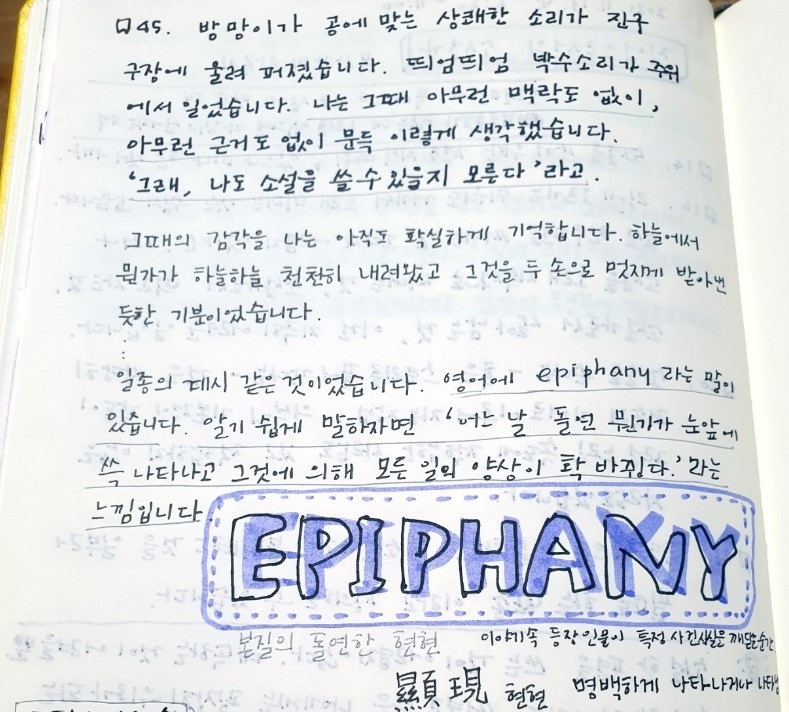 45. 방망이가 공에 맞는 상쾌한 소리가 진구
구장에 울려 퍼졌습니다. 띄엄띄엄 박수소리가 주위
에서 일었습니다. 나는 그때 아무런 맥락도 없이,
아무런 근거도 없이 문득 이렇게 생각했습니다.
'그래, 나도 소설을 쓸 수 있을지 모른다'라고.
그때의 감각을 나는 아직도 확실하게 기억합니다. 하늘에서
뭔가가 하늘하늘 천천히 내려왔고 그것을 두 손으로 멋지게 받아낸
듯한 기분이었습니다.
⋮
일종의 계시 같은 것이었습니다. 영어에 epiphany 라는 말이
있습니다. 알기 쉽게 말하자면 '어느 날 돌연 뭔가가 눈앞에
쓱 나타나고 그것에 의해 모든 일의 양상이 확 바뀐다.'라는
느낌입니다
EPIPHANY
본질의 돌연한 현현
이야기속 등장인물이 특정 사건사실을 깨닫는순간
顯現 현현 명백하게 나타나거나